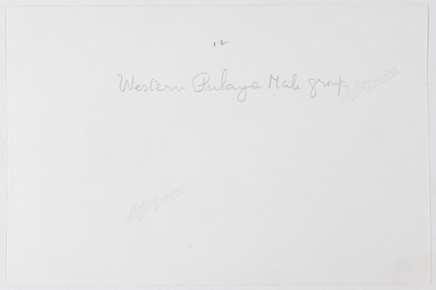 12
Western Pulaya Male group